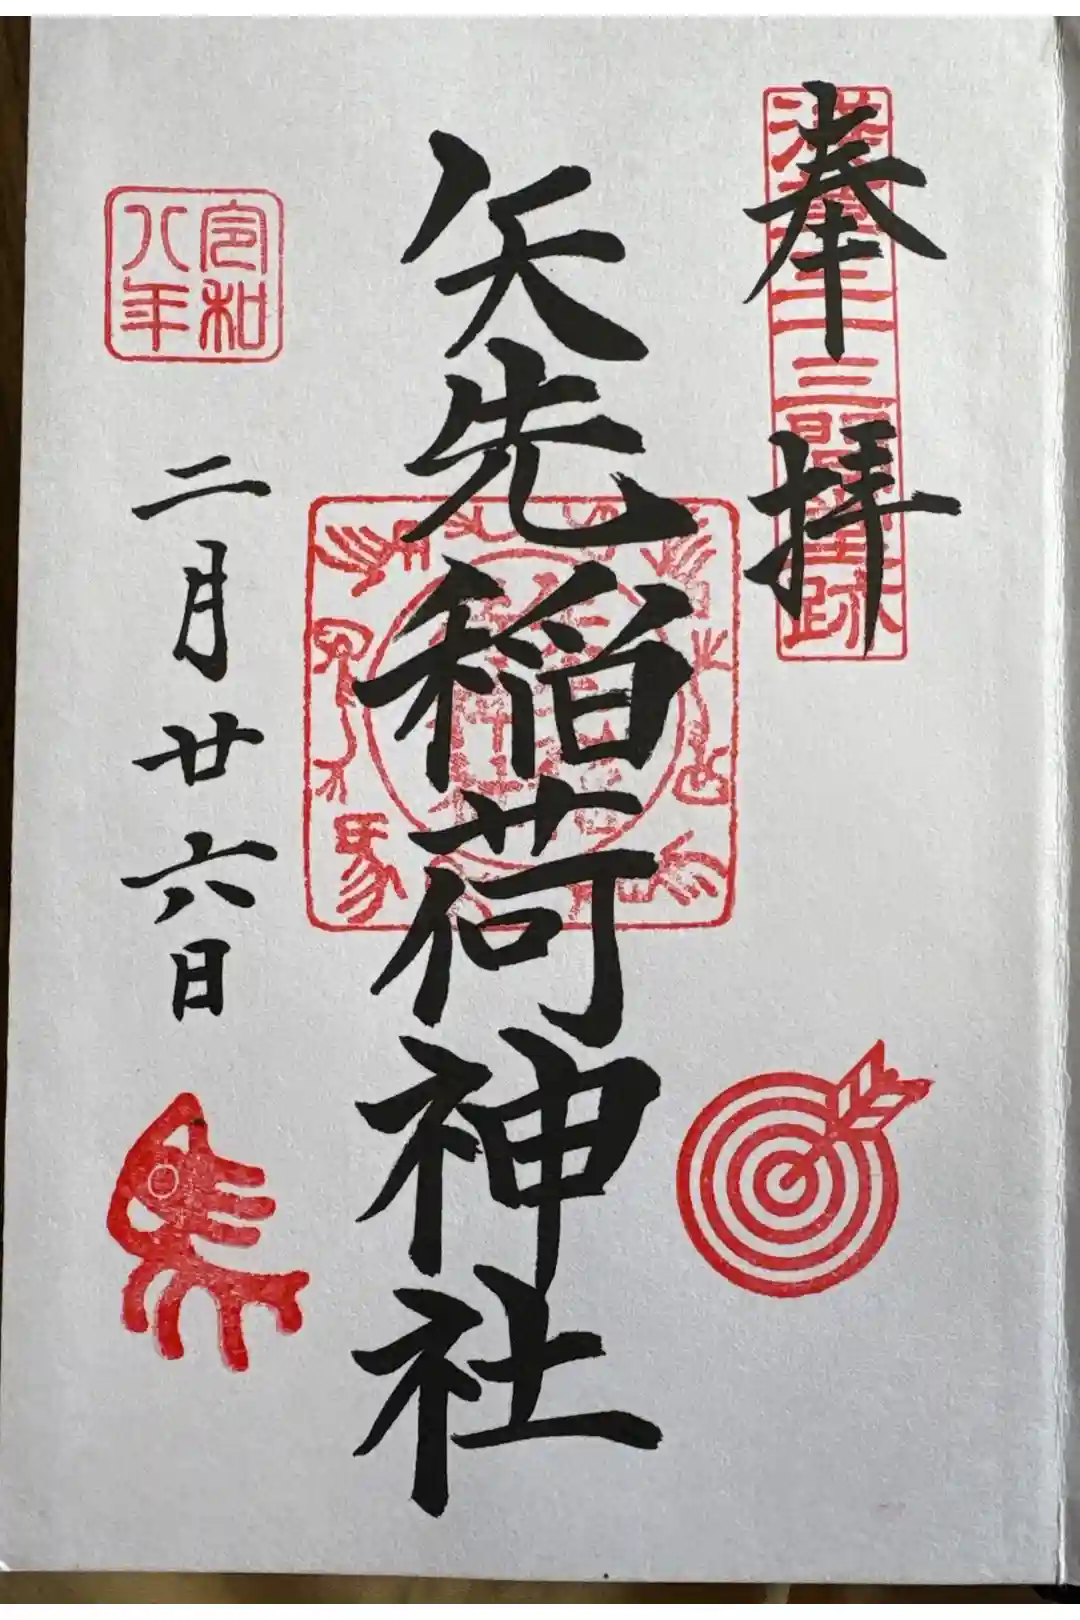 奉拝
浅草三十三間堂跡
矢先稲荷神社
馬
令和八年
二月廿六日